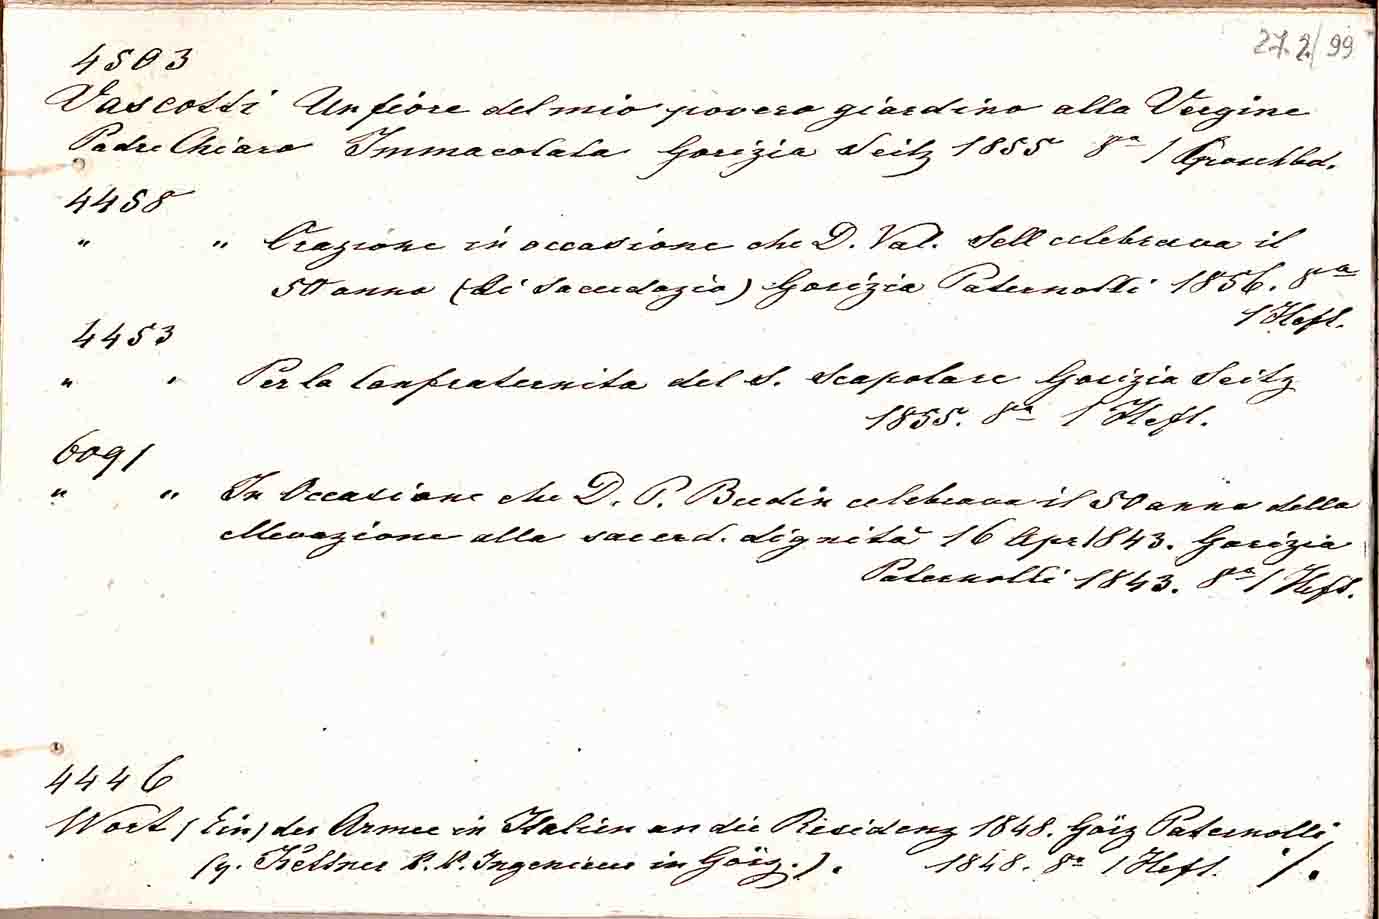 27.2/99
4503
Vascotti Un fiore del mio povero giardino alla Vergine
Padre Chiaro Immacolata Gorizia Seitz 1855 8º 1 Broschbd.
4458
" " Orazione in occasione che D. Val. Sell celebrava il
50 anno (di sacerdozio) Gorizia Paternolli 1856. 8º
1 Heft.
4453
" " Per la Confraternita del S. Scapolare Gorizia Seitz
1855. 8º 1 Heft.
6091
" " In Occasione che D. P. Budin celebrava il 50 anno della
ellevazione alla sacerd. dignità 16 Apr 1843. Gorizia
Paternolli 1843. 8º 1 Heft.
4446
Wort (Ein) der Armee in Italien an die Residenz 1848. Görz Paternolli
(q. Kettner k. k. Ingenieur in Görz.). 1848. 8º 1 Heft. ·/.